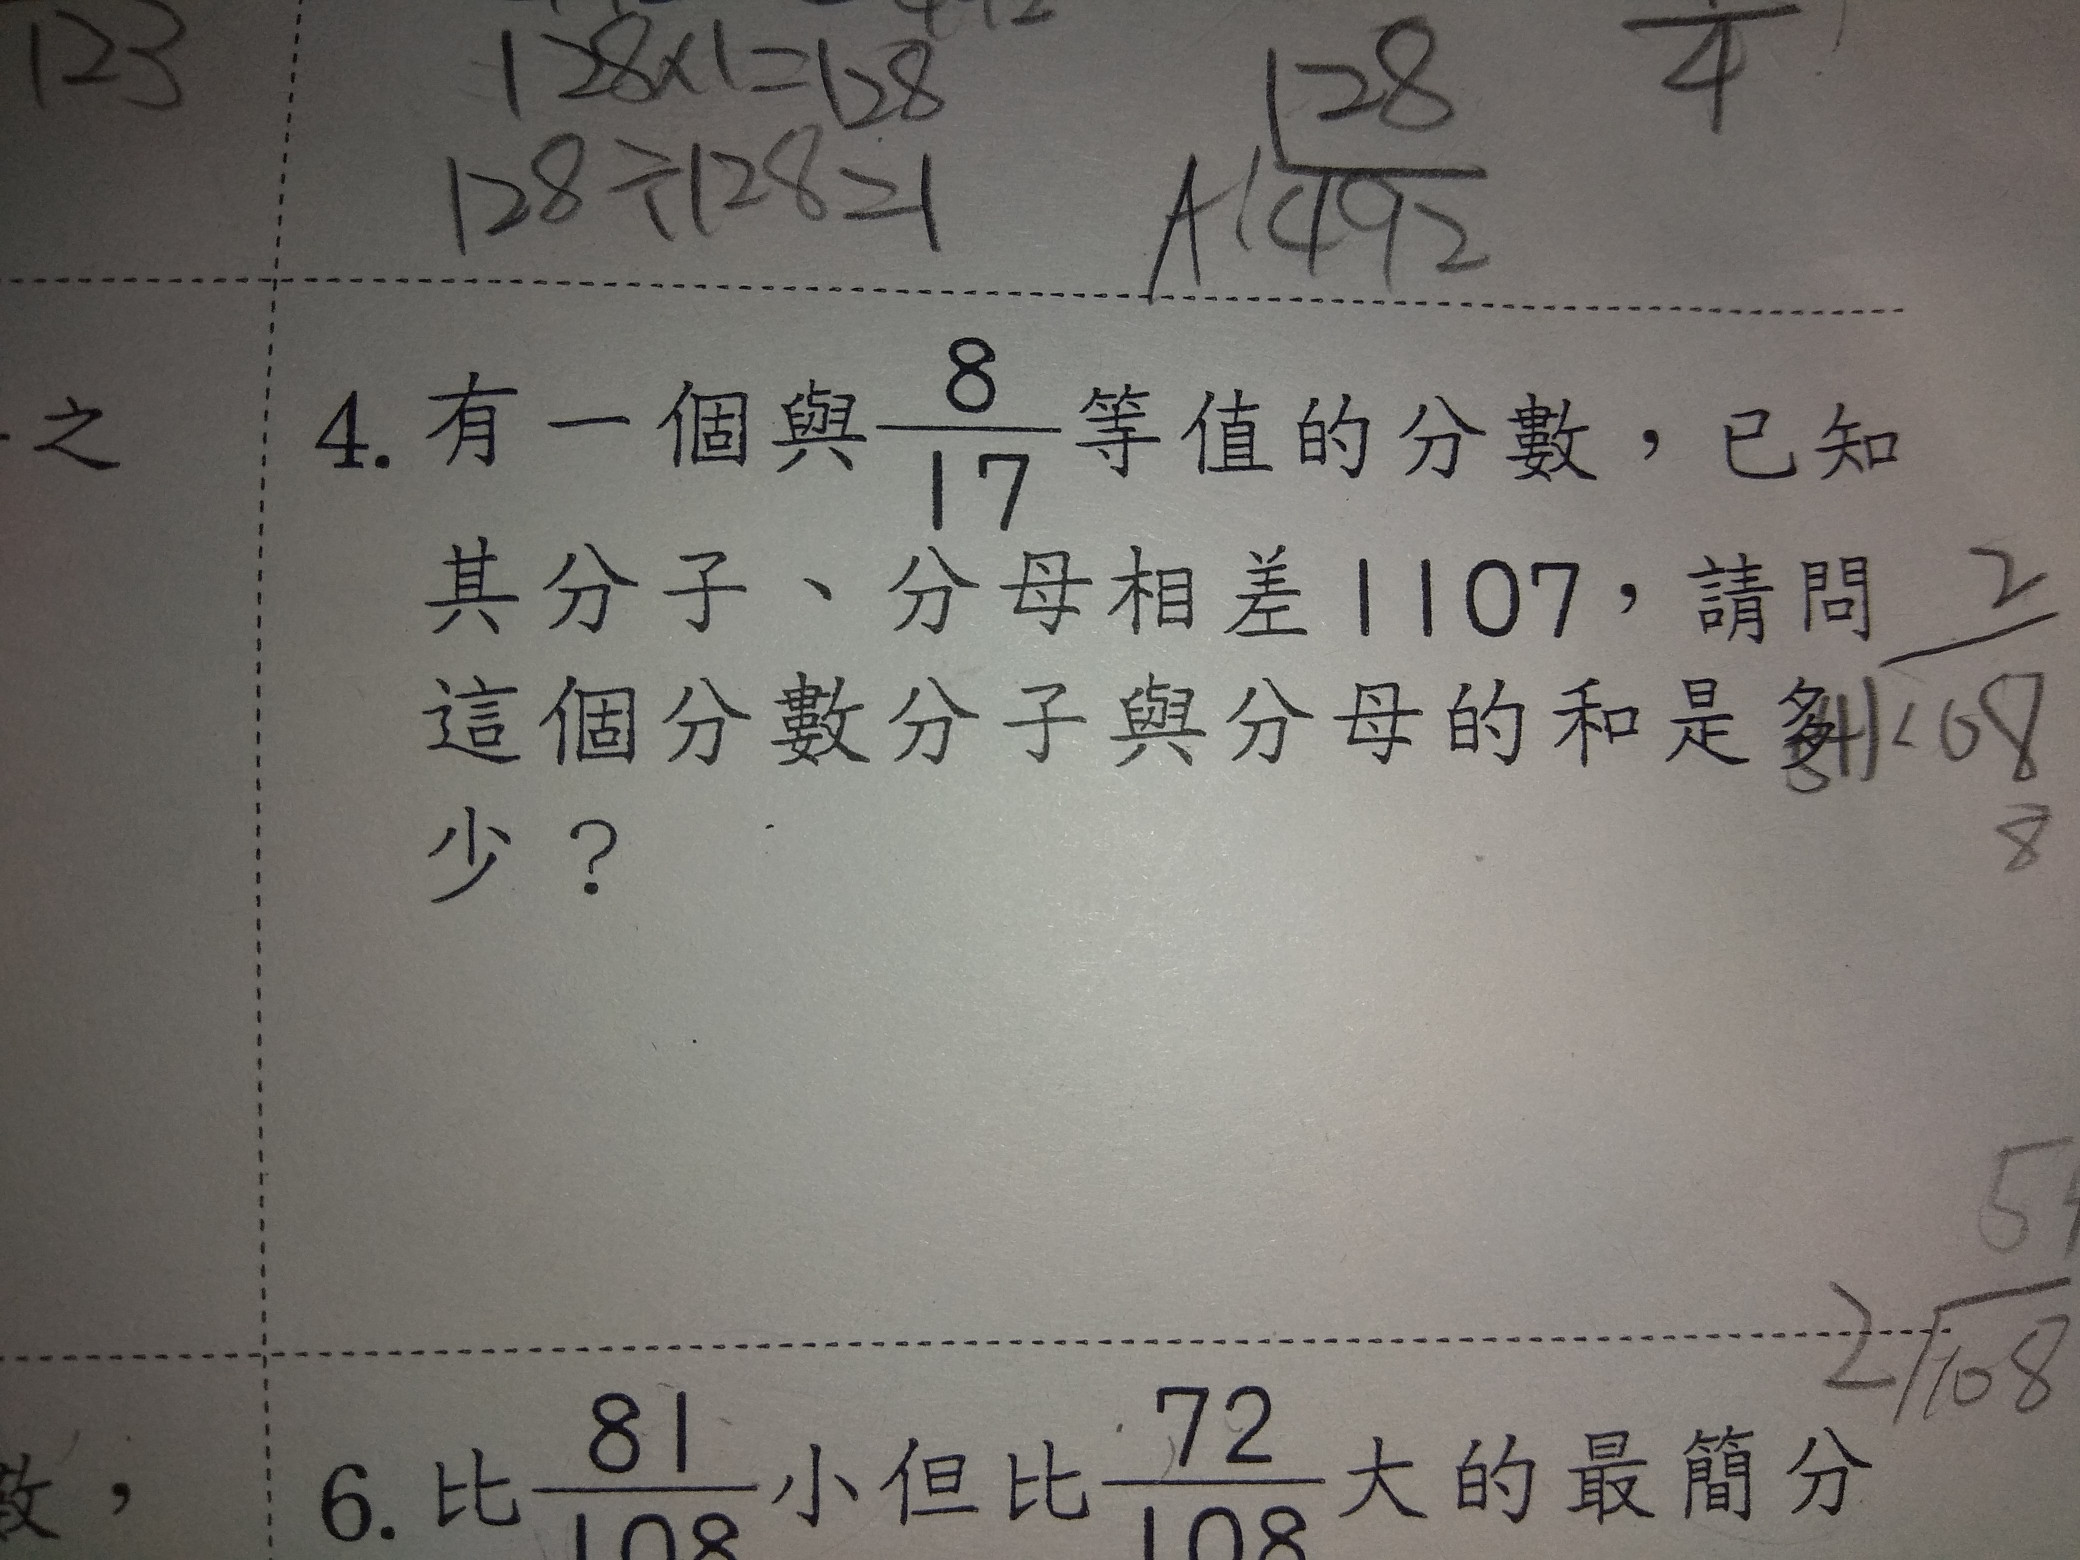 123
128×1=128
128÷128=1
128
A 492
4
之
4. 有一個與8/17等值的分數，已知
其分子、分母相差1107，請問
這個分數分子與分母的和是多
少？
2
108
8
2 108
6. 比81/108小但比72/108大的最簡分